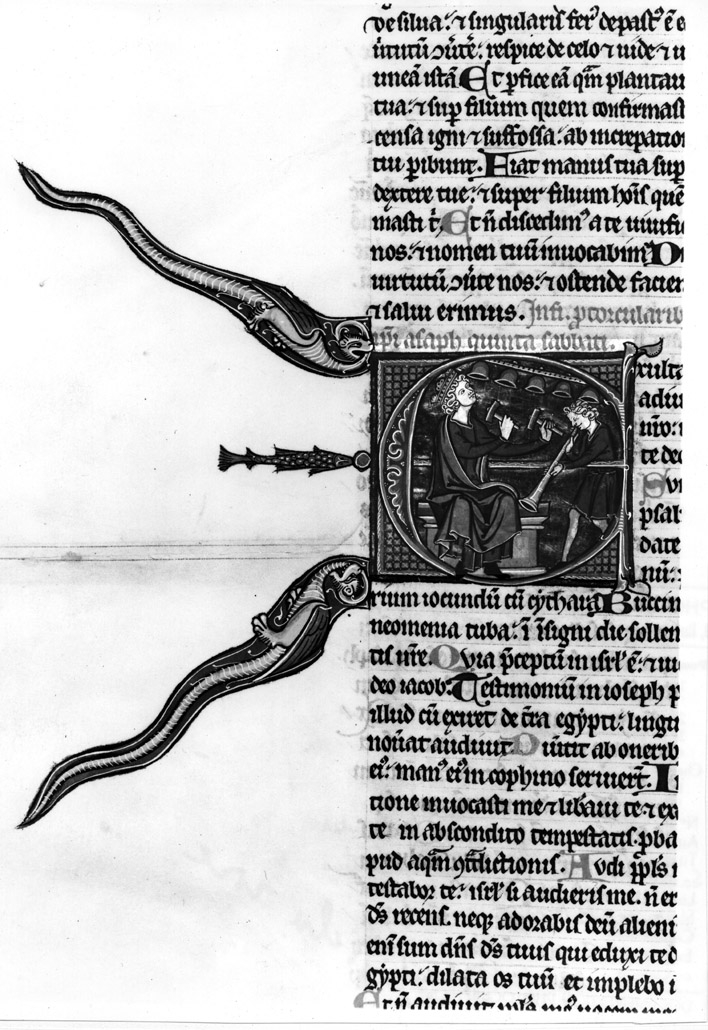 de silua: ⁊ singularis fer᷒ depast᷒ ē e
ũtutũ ↄũte: respice de celo ⁊ uide ⁊ u
uineā istā Et ꝑfice eā qm̄ plantau
tua: ⁊ sup̄ filium quem confirmast
censa igni ⁊ suffossa: ab increpatio
tui ꝑibunt. Fiat manus tua sup
dextere tue: ⁊ super filium hoīs quē
masti t̄ Et ñ discedim᷒ a te uiuifi
nos: ⁊ nomen tuū inuocabim᷒ D
uirtutū ↄũte nos: ⁊ ostende facien
⁊ salui erimus. Infi. ꝑtorcularib
ip̄i asaph quinta sabbati.
Exulta
adiu
nr̄o:
te deo
Su
psal
date
nū:
rium iocundū cū cythara Buccin
neomenia tuba: ī īsigni die sollen
tis nr̄e. Quia p̄ceptū in isrl̄ ē: ⁊ iu
deo iacob: Testimoniū in ioseph p
illud cū exiret de t̄ra egypti: lingu
nouat audiuit Diūtit ab onerib
ei᷒: man᷒ ei᷒ in cophino seruier̄t. I
tione inuocasti me ⁊ libaui te: ⁊ ex
te in abscondito tempestatis: ꝓba
pud aqm̄ ↄt̄dictionis. Audi ppl̄s
testabor te: isrl̄ si audieris me. ñ er
ds̄ recens. neq᷒ adorabis deū alieni
eni᷒ sum dn̄s ds̄ tuus qui eduxi te d
gypti: dilata os tuū et implebo i
Et ñ audiuit